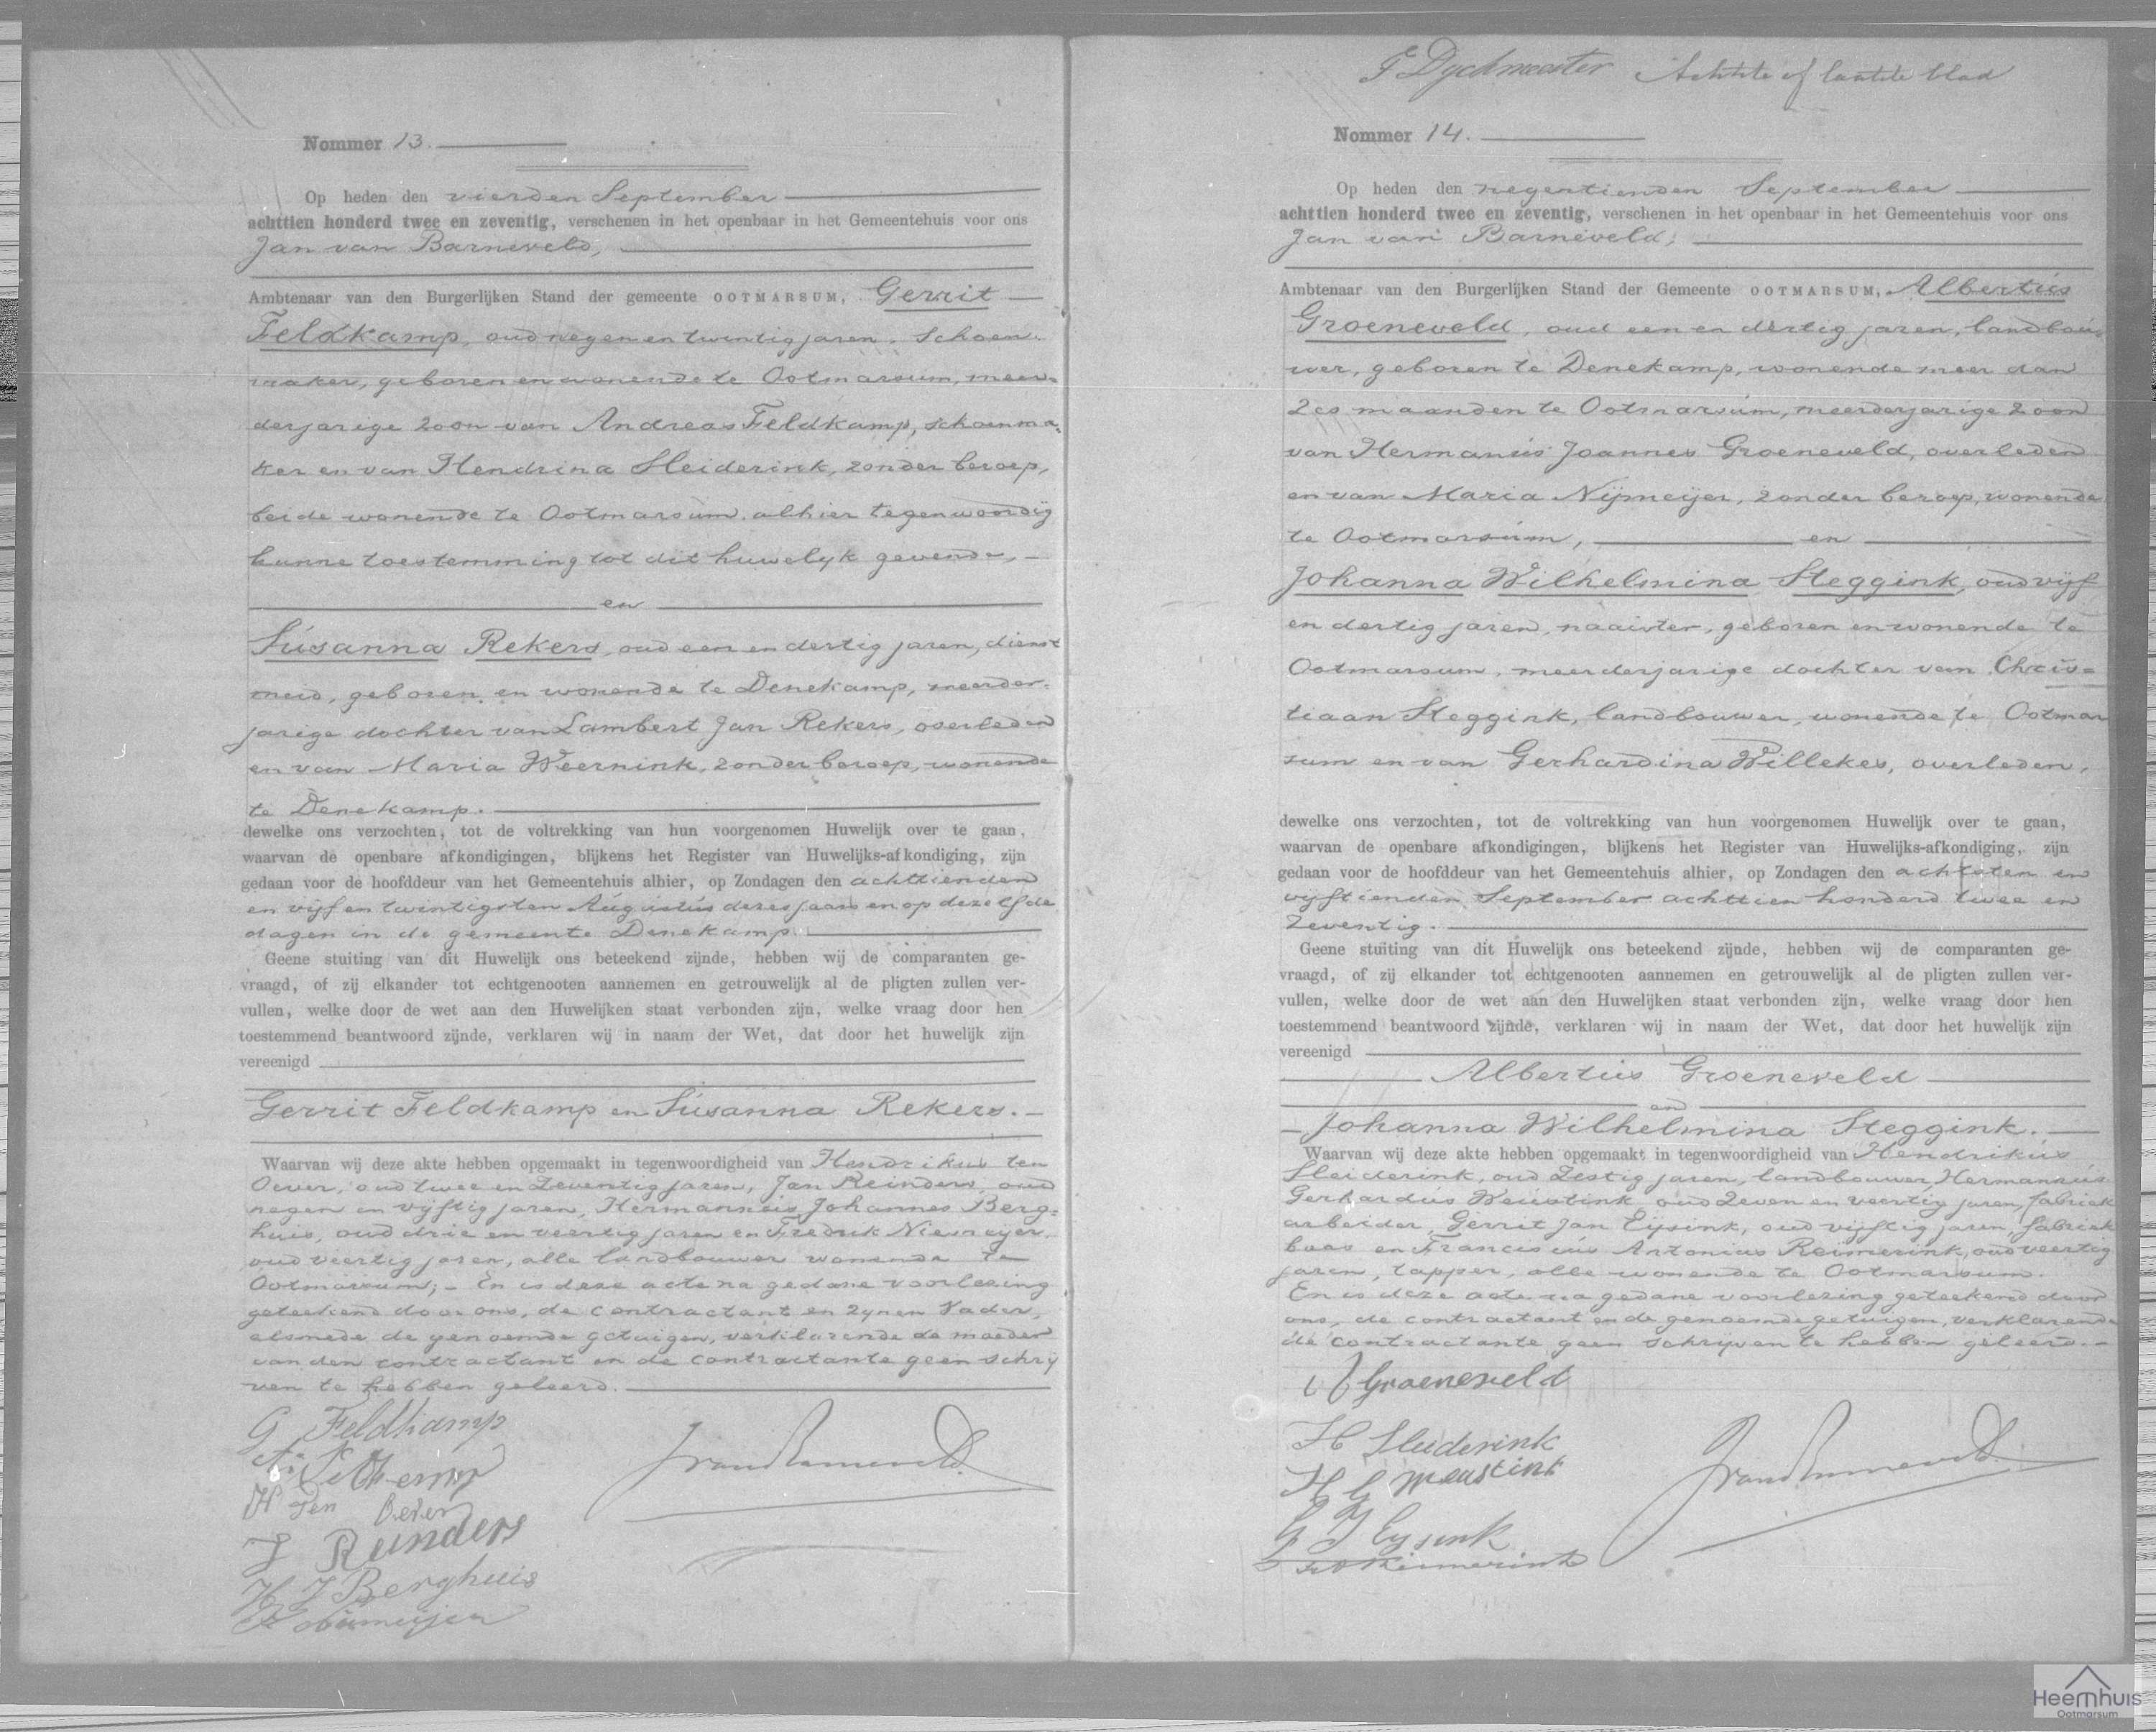 Nommer 13.
Op heden den vierden September
achttien honderd twee en zeventig, verschenen in het openbaar in het Gemeentehuis voor ons
Jan van Barneveld,
Ambtenaar van den Burgerlijken Stand der gemeente OOTMARSUM, Gerrit
Feldkamp, oud negen en twintig jaren, schoen-
maker, geboren en wonende te Ootmarsum, meer-
derjarige zoon van Andreas Feldkamp, schoenma-
ker en van Hendrina Sleiderink, zonder beroep,
beide wonende te Ootmarsum, alhier tegenwoordig
hunne toestemming tot dit huwelyk gevende,
en
Susanna Rekers, oud een en dertig jaren, dienst
meid, geboren en wonende te Denekamp, meerder-
jarige dochter van Lambert Jan Rekers, overleden
en van Maria Weernink, zonder beroep, wonende
te Denekamp.
dewelke ons verzochten, tot de voltrekking van hun voorgenomen Huwelijk over te gaan,
waarvan de openbare afkondigingen, blijkens het Register van Huwelijks-afkondiging, zijn
gedaan voor de hoofddeur van het Gemeentehuis alhier, op Zondagen den achttienden
en vijf en twintigsten Augustus dezes jaars en op dezelfde
dagen in de gemeente Denekamp.
Geene stuiting van dit Huwelijk ons beteekend zijnde, hebben wij de comparanten ge-
vraagd, of zij elkander tot echtgenooten aannemen en getrouwelijk al de pligten zullen ver-
vullen, welke door de wet aan den Huwelijken staat verbonden zijn, welke vraag door hen
toestemmend beantwoord zijnde, verklaren wij in naam der Wet, dat door het huwelijk zijn
vereenigd
Gerrit Feldkamp en Susanna Rekers.
Waarvan wij deze akte hebben opgemaakt in tegenwoordigheid van Hendrikus ten
Oever, oud twee en zeventig jaren, Jan Reinders, oud
negen en vyftig jaren, Hermannus Johannes Berg-
huis, oud drie en veertig jaren en Fredrik Niemeijer,
oud veertig jaren, alle landbouwer wonende te
Ootmarsum; - En is deze acte na gedane voorlezing
geteekend door ons, de contractant en zynen Vader,
alsmede de genoemde getuigen, verklarende de moeder
van den contractant en de contractante geen schrij
ven te hebben geleerd.
G Feldkamp
A. Feltkemp
H Ten Oever
J Reinders
H J Berghuis
F Niemeijer
JvanBarneveld
G Dyckmeester Achtste of laatste blad
Nommer 14.
Op heden den negentienden September
achttien honderd twee en zeventig, verschenen in het openbaar in het Gemeentehuis voor ons
Jan van Barneveld,
Ambtenaar van den Burgerlijken Stand der Gemeente OOTMARSUM, Albertus
Groeneveld, oud een en dertig jaren, landbou-
wer, geboren te Denekamp, wonende meer dan
zes maanden te Ootmarsum, meerderjarige zoon
van Hermanus Joannes Groeneveld, overleden
en van Maria Nijmeijer, zonder beroep, wonende
te Ootmarsum, en
Johanna Wilhelmina Steggink, oud vijf
en dertig jaren, naaister, geboren en wonende te
Ootmarsum, meerderjarige dochter van Chris-
tiaan Steggink, landbouwer, wonende te Ootmar
sum en van Gerhardina Willekes, overleden,
dewelke ons verzochten, tot de voltrekking van hun voorgenomen Huwelijk over te gaan,
waarvan de openbare afkondigingen, blijkens het Register van Huwelijks-afkondiging, zijn
gedaan voor de hoofddeur van het Gemeentehuis alhier, op Zondagen den achtsten en
vyftienden September achttien honderd twee en
zeventig.
Geene stuiting van dit Huwelijk ons beteekend zijnde, hebben wij de comparanten ge-
vraagd, of zij elkander tot echtgenooten aannemen en getrouwelijk al de pligten zullen ver-
vullen, welke door de wet aan den Huwelijken staat verbonden zijn, welke vraag door hen
toestemmend beantwoord zijnde, verklaren wij in naam der Wet, dat door het huwelijk zijn
vereenigd
Albertus Groeneveld
en
Johanna Wilhelmina Steggink.
Waarvan wij deze akte hebben opgemaakt in tegenwoordigheid van Hendrikus
Sleiderink, oud zestig jaren, landbouwer, Hermannus
Gerhardus Meustink oud zeven en veertig jaren, fabriek
arbeider, Gerrit Jan Eysink, oud vijftig jaren, fabriek
baas en Franciscus Antonius Reimerink, oud veertig
jaren, tapper, alle wonende te Ootmarsum.
En is deze acte na gedane voorlezing geteekend door
ons, de contractant en de genoemde getuigen, verklarende
de contractante geen schrijven te hebben geleerd.
A Groeneveld
H Sleiderink
H G Meustink
G J Eysink
F A Reimerink
JvanBarneveld
Heemhuis
Ootmarsum